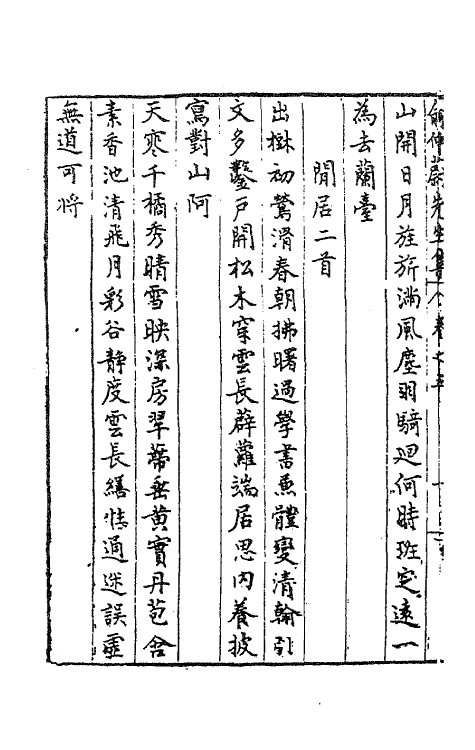 先生集
山開日月旌旂滿風塵羽騎迴何時班定遠一
為去蘭臺
閒居二首
出樹初鶯滑春朝拂曙過學書兼體變清翰引
文多鑿戶開松木穿雲長薜蘿端居思內養披
寫對山阿
天寒千橘秀晴雪映深房翠帶垂黃實丹苞含
素香池清飛月彩谷靜度雲長繕性通迷誤虛
無道可將